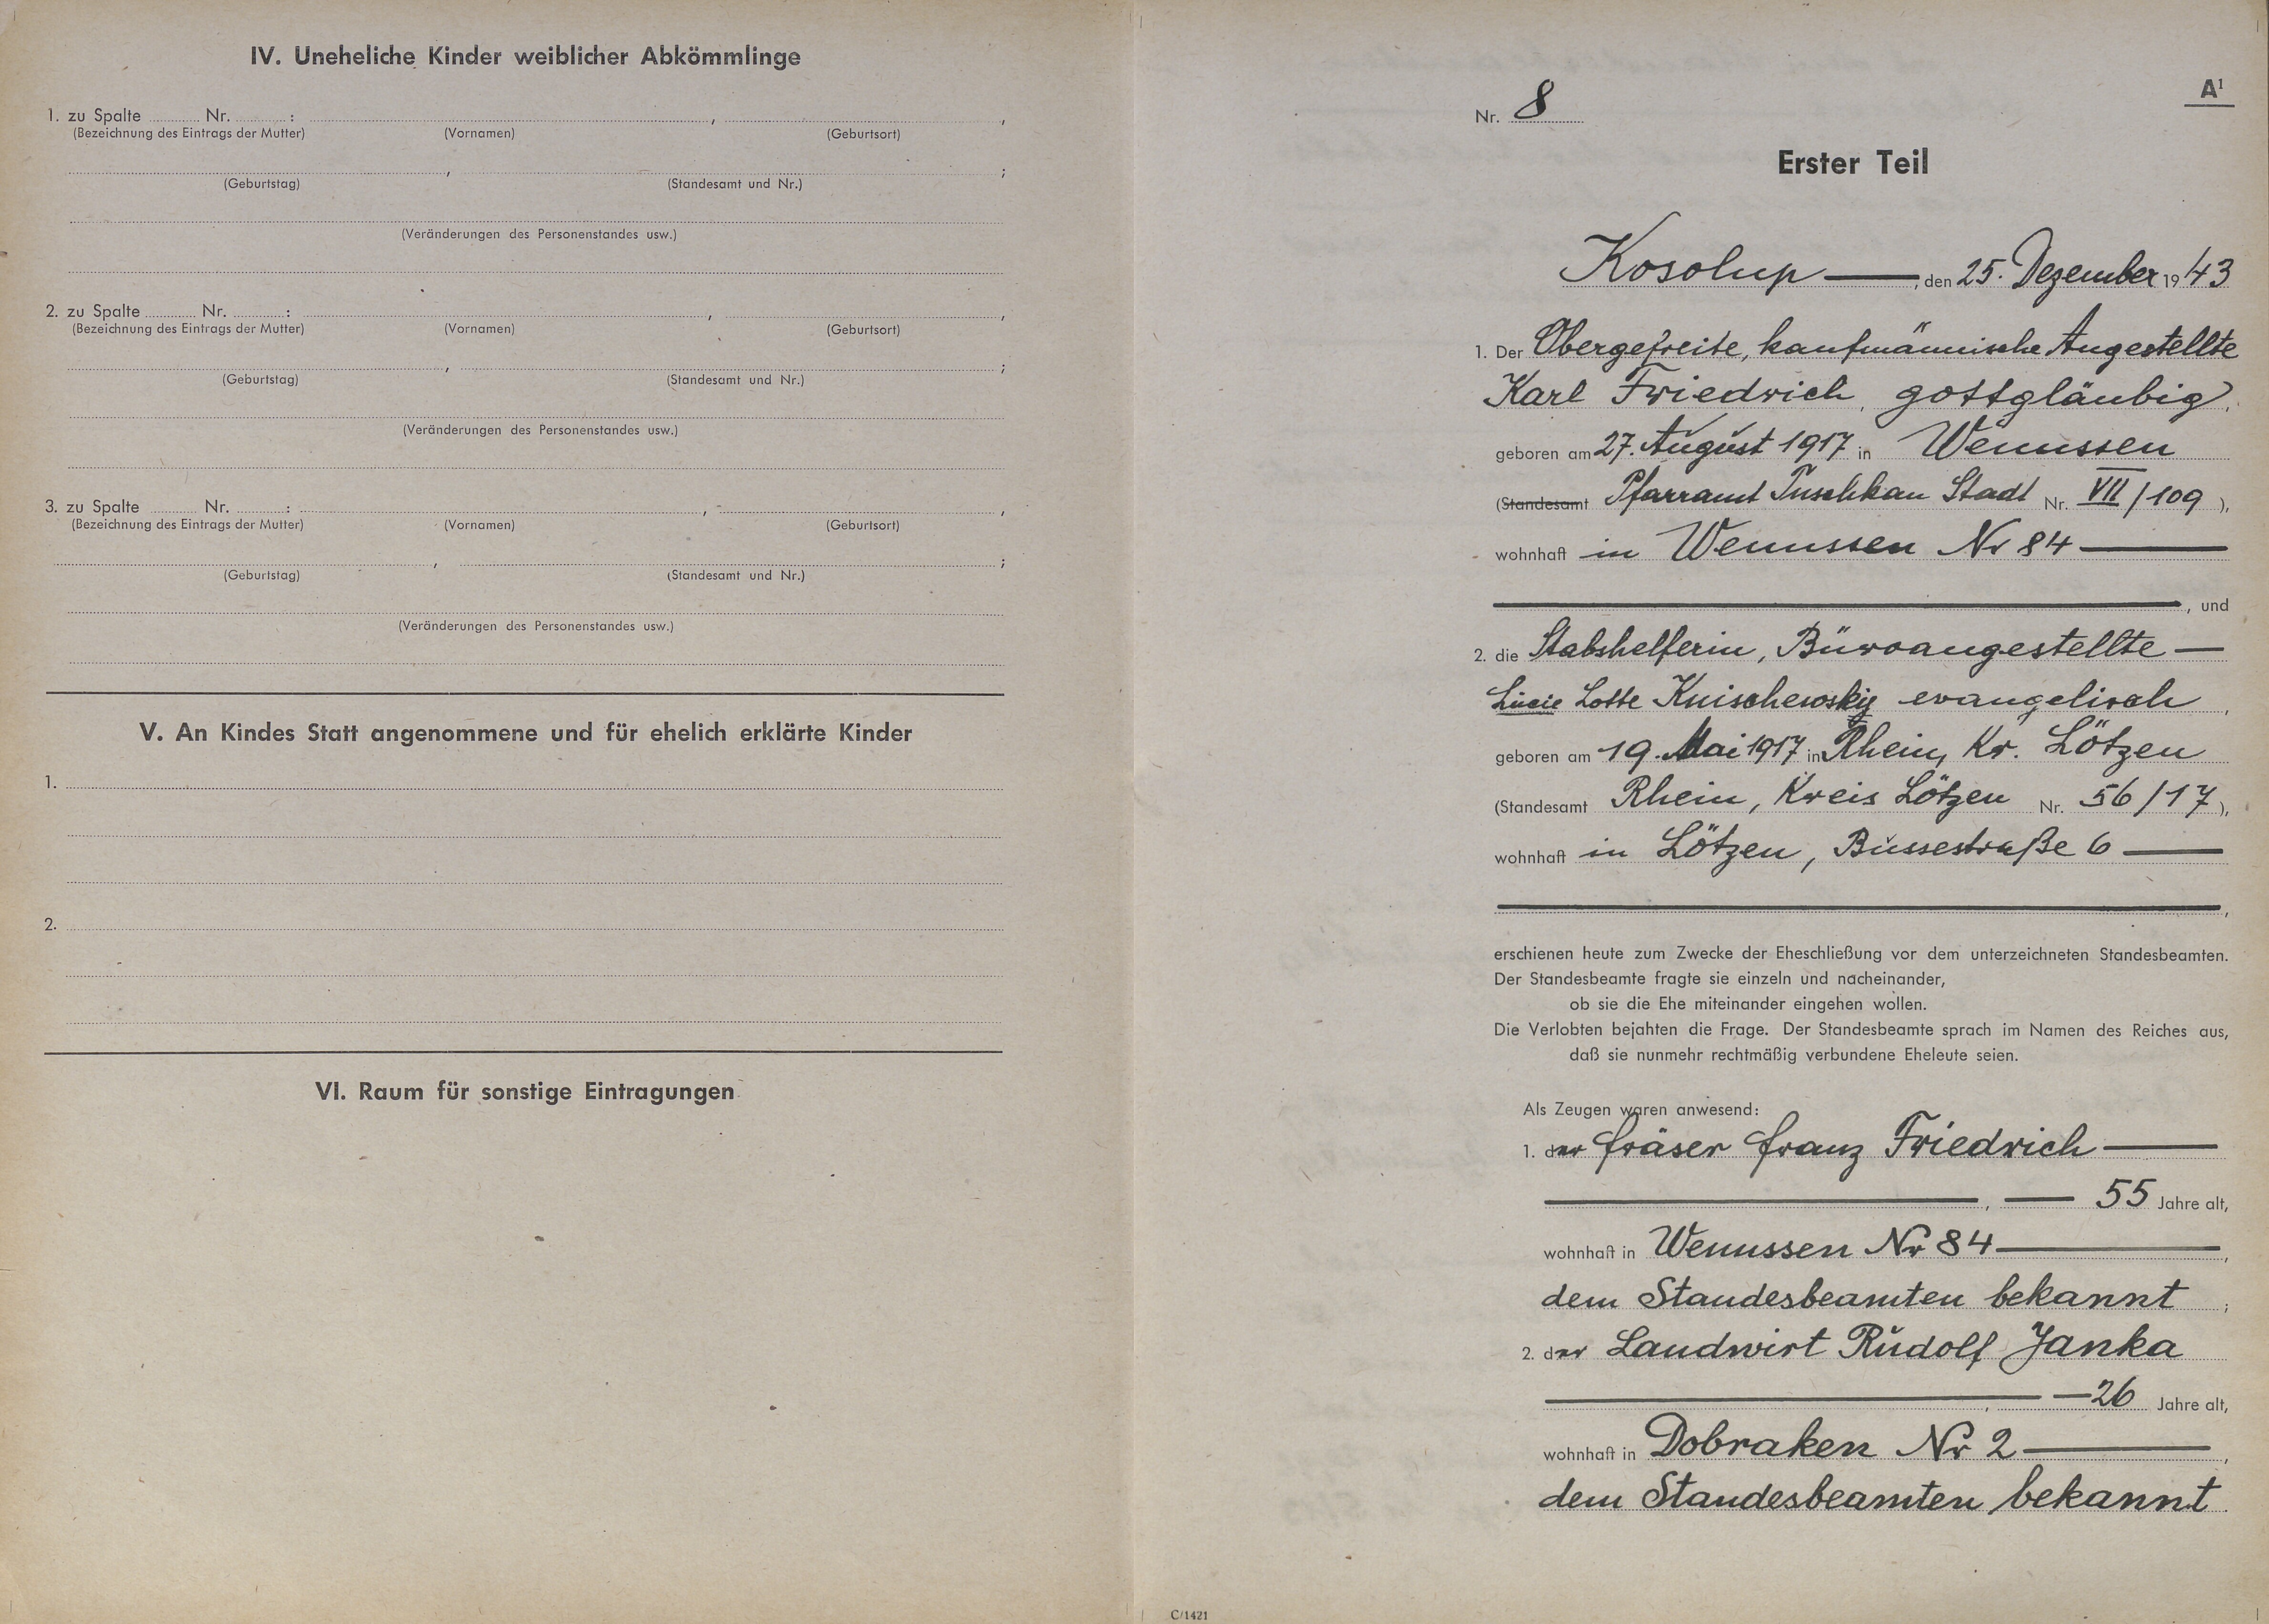 IV. Uneheliche Kinder weiblicher Abkömmlinge
1. zu Spalte ........ Nr. ........ : ........ , ........ ,
(Bezeichnung des Eintrags der Mutter) (Vornamen) (Geburtsort)
........ , ........ ;
(Geburtstag) (Standesamt und Nr.)
(Veränderungen des Personenstandes usw.)
2. zu Spalte ........ Nr. ........ : ........ , ........ ,
(Bezeichnung des Eintrags der Mutter) (Vornamen) (Geburtsort)
........ , ........ ;
(Geburtstag) (Standesamt und Nr.)
(Veränderungen des Personenstandes usw.)
3. zu Spalte ........ Nr. ........ : ........ , ........ ,
(Bezeichnung des Eintrags der Mutter) (Vornamen) (Geburtsort)
........ , ........ ;
(Geburtstag) (Standesamt und Nr.)
(Veränderungen des Personenstandes usw.)
V. An Kindes Statt angenommene und für ehelich erklärte Kinder
1.
2.
VI. Raum für sonstige Eintragungen
A1
Nr. 8
Erster Teil
Kosolup —, den 25. Dezember 1943
1. Der Obergefreite, kaufmännische Angestellte
Karl Friedrich, gottgläubig,
geboren am 27. August 1917 in Wenussen
(Standesamt Pfarramt Tuschkau Stadt Nr. VII/109),
wohnhaft in Wenussen Nr 84 —
—, und
2. die Stabshelferin, Büroangestellte —
Lucie Lotte Knischewsky evangelisch,
geboren am 19. Mai 1917 in Rhein, Kr. Lötzen
(Standesamt Rhein, Kreis Lötzen Nr. 56/17),
wohnhaft in Lötzen, Bussestraße 6 —
—,
erschienen heute zum Zwecke der Eheschließung vor dem unterzeichneten Standesbeamten.
Der Standesbeamte fragte sie einzeln und nacheinander,
ob sie die Ehe miteinander eingehen wollen.
Die Verlobten bejahten die Frage. Der Standesbeamte sprach im Namen des Reiches aus,
daß sie nunmehr rechtmäßig verbundene Eheleute seien.
Als Zeugen waren anwesend:
1. der Fräser Franz Friedrich —
—, — 55 Jahre alt,
wohnhaft in Wenussen Nr 84 —,
dem Standesbeamten bekannt;
2. der Landwirt Rudolf Janka
—, — 26 Jahre alt,
wohnhaft in Dobraken Nr 2 —,
dem Standesbeamten bekannt.
C/1421